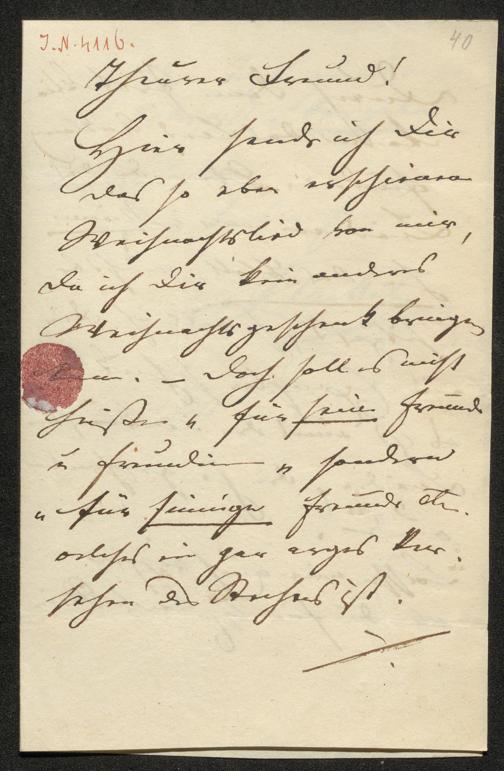 J. N. 4116.
40
Theurer Freund!
Hier sende ich Dir
das so eben erschienene
Weihnachtslied von mir,
da ich Dir kein anderes
Weihnachtsgeschenk bringen
kann. – Doch soll es nicht
heißen „ für seine Freunde
u Freundinen „ sondern
„ für sinnige Freunde etc.
welches ein gar arges Ver-
sehen des Stechers ist.